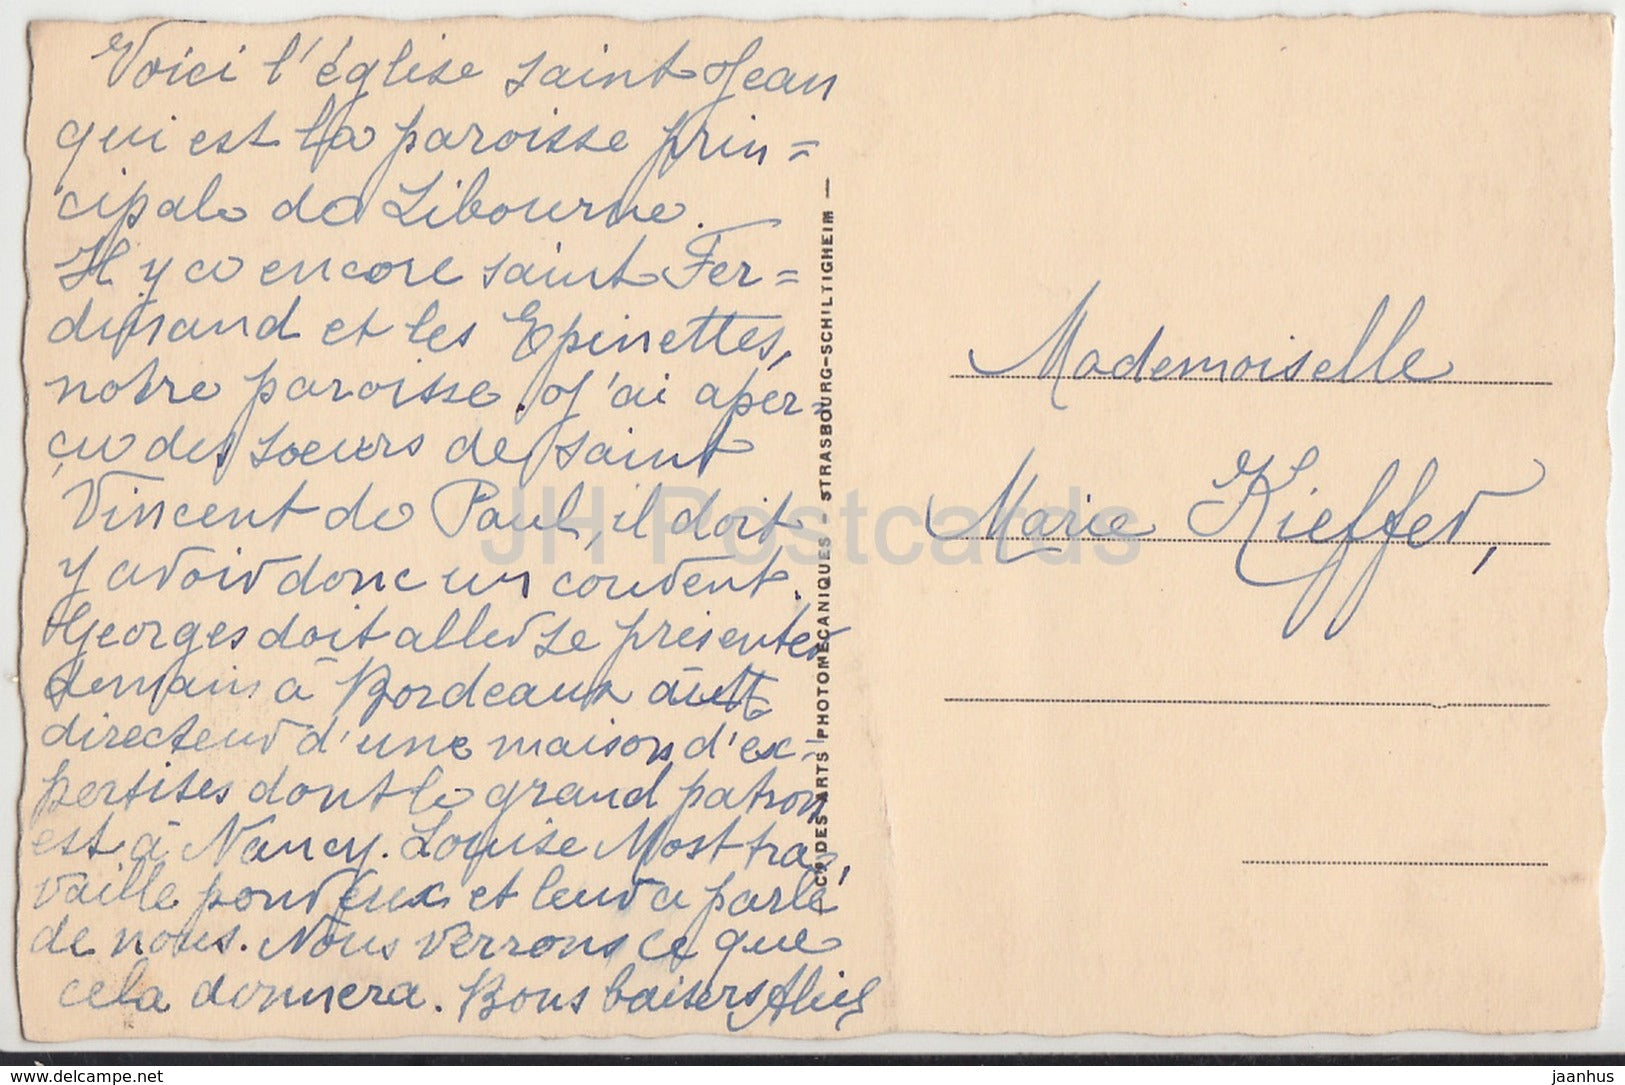 Voici l'église saint Jean
qui est la paroisse prin=
cipale de Libourne.
Il y a encore saint Fer=
dinand et les Epinettes,
notre paroisse. J'ai aper=
çu des soeurs de saint
Vincent de Paul, il doit
y avoir donc un couvent.
Georges doit aller se présenter
demain à Bordeaux
directeur d'une maison d'ex=
pertises dont le grand patron
est à Nancy. Louise Most tra=
vaille pour eux et leur a parlé
de nous. Nous verrons ce que
cela donnera. Bons baisers
Mademoiselle
Marie Kieffer,
DES ARTS PHOTOMÉCANIQUES - STRASBOURG-SCHILTIGHEIM —
JH Postcards
https://www.delcampe.net
jaanhus